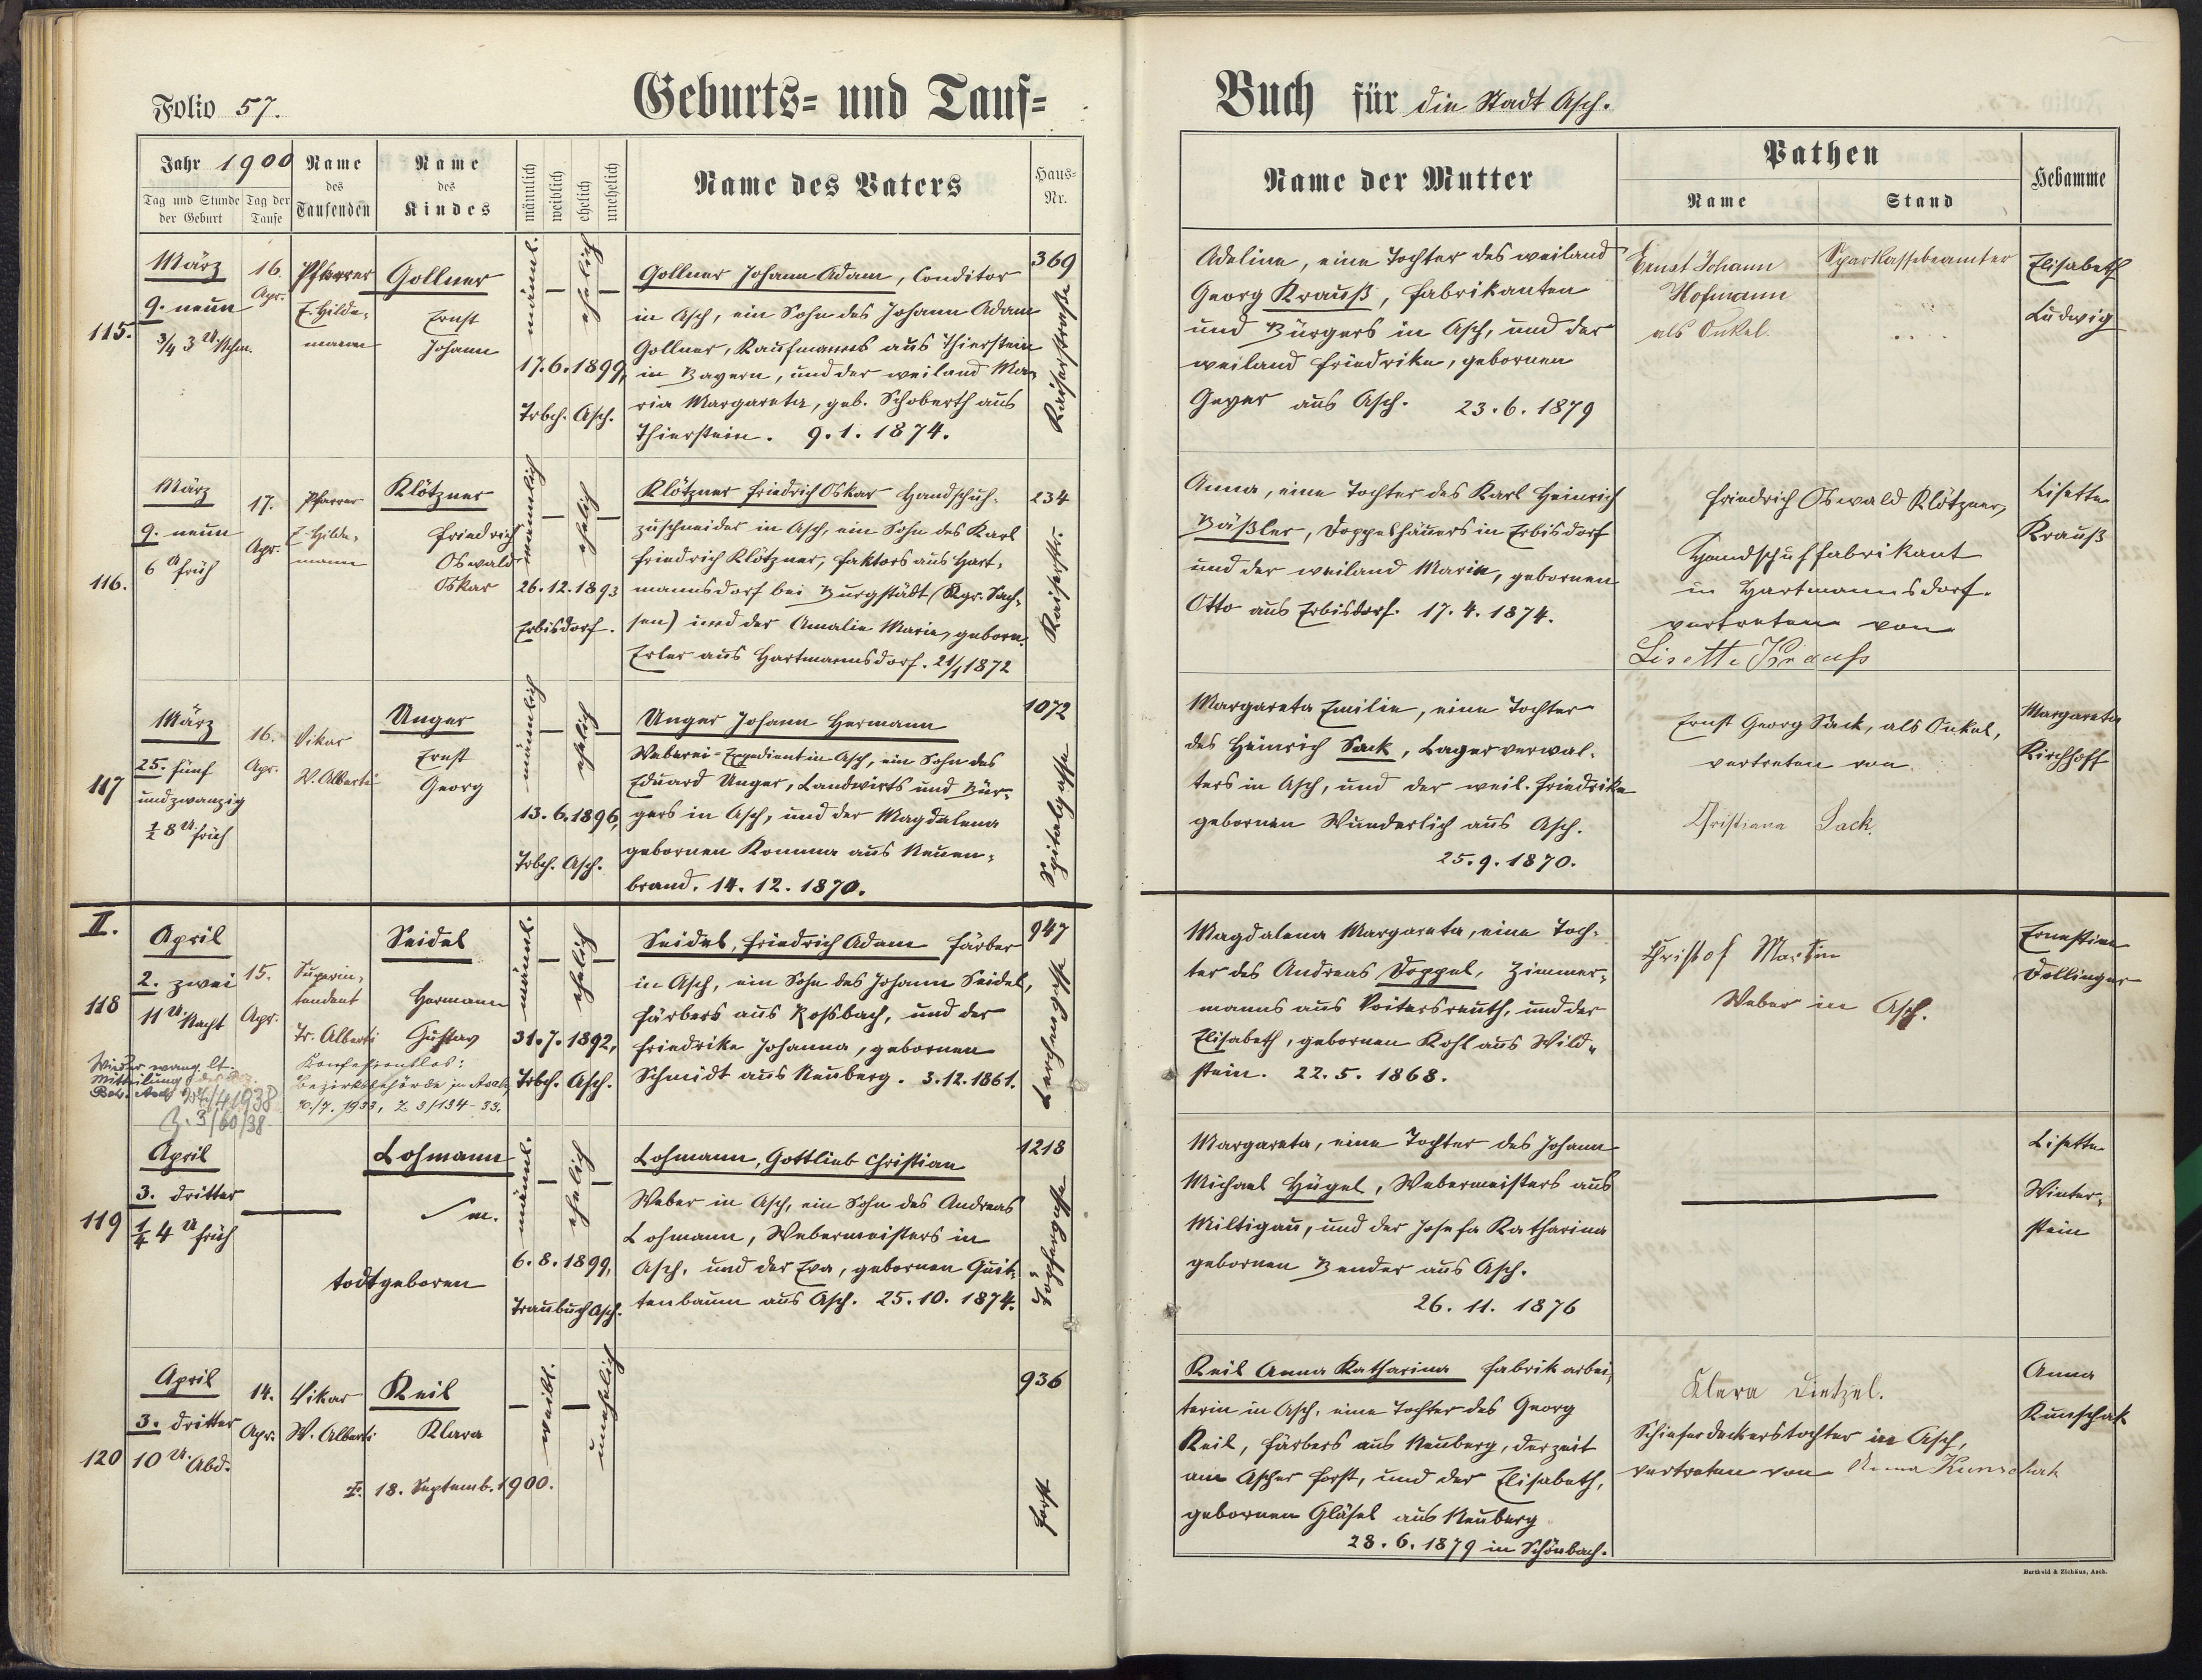 Folio 57.
Geburts= und Tauf=
Jahr 1900
Tag und Stunde der Geburt
Tag der Taufe
Name des Taufenden
Name des Kindes
männlich
weiblich
ehelich
unehelich
Name des Vaters
Haus-Nr.
115.
März
9. neun
3/4 3 U. Nchm.
16.
Apr.
Pfarrer
E. Hilde-
mann
Gollner
Ernst
Johann
männl.
ehelich
17.6.1899,
Trbch. Asch.
Gollner Johann Adam, Conditor
in Asch, ein Sohn des Johann Adam
Gollner, Kaufmanns aus Thierstein
in Bayern, und der weiland Ma-
ria Margareta, geb. Schoberth aus
Thierstein. 9.1.1874.
369
Kaiserstraße
116.
März
9. neun
6 U früh
17.
Apr.
Pfarrer
E. Hilde-
mann
Klötzner
Friedrich
Oswald
Oskar
männlich
ehelich
26.12.1893
Erbisdorf.
Klötzner Friedrich Oskar Handschuh-
zuschneider in Asch, ein Sohn des Karl
Friedrich Klötzner, Faktors aus Hart-
mannsdorf bei Burgstädt (Kgr. Sach-
sen) und der Amalie Marie, geborn.
Erler aus Hartmannsdorf. 21/1 1872
234
Kaiserstr.
117
März
25. fünf
und zwanzig
1/2 8 U. früh
16.
Apr.
Vikar
W. Alberti
Unger
Ernst
Georg
männlich
ehelich
13.6.1896,
Trbch. Asch.
Unger Johann Hermann
Weberei-Expedient in Asch, ein Sohn des
Eduard Unger, Landwirts und Bür-
gers in Asch, und der Magdalena
gebornen Komma aus Neuen-
brand. 14.12.1870.
1072
Spitalgasse
II.
118
April
2. zwei
11 U. Nacht
15.
Apr.
Superin-
tendent
Tr. Alberti
Seidel
Hermann
Gustav
Konfessionslos:
Bezirksbehörde in Asch,
/7. 1933, Z 3/134-33.
Wieder evang. lt.
Mitteilung der Bez.
Beh. Asch 1938
Z. 3/60/38
männl.
ehelich
31.7.1892,
Trbch. Asch.
Seidel, Friedrich Adam Färber
in Asch, ein Sohn des Johann Seidel,
Färbers aus Roßbach, und der
Friedrike Johanna, gebornen
Schmidt aus Neuberg. 3.12.1861.
947
Lerchengasse
119
April
3. dritter
1/4 4 U früh
Lohmann
m.
todtgeboren
männl.
ehelich
6.8.1899,
Traubuch Asch.
Lohmann, Gottlieb Christian
Weber in Asch, ein Sohn des Andreas
Lohmann, Webermeisters in
Asch, und der Eva, gebornen Quit-
tenbaum aus Asch. 25.10.1874.
1218
Töpfergasse
120
April
3. dritter
10 U. Abd.
14.
Apr.
Vikar
W. Alberti
Keil
Klara
18. Septemb. 1900.
weibl.
unehelich
936
Forst
Buch für die Stadt Asch.
Name der Mutter
Pathen
Name
Stand
Hebamme
Adeline, eine Tochter des weiland
Georg Krauß, Fabrikanten
und Bürgers in Asch, und der
weiland Friedrike, gebornen
Geyer aus Asch. 23.6.1879
Ernst Johann
Hofmann
als Onkel.
Sparkassebeamter
Elisabeth
Ludwig
Anna, eine Tochter des Karl Heinrich
Bäßler, Doppelhäuers in Erbisdorf
und der weiland Marie, gebornen
Otto aus Erbisdorf. 17.4.1874.
Friedrich Oswald Klötzner,
Handschuhfabrikant
in Hartmannsdorf.
vertreten von
Lisette Krauss
Lisette
Krauß
Margareta Emilie, eine Tochter
des Heinrich Sack, Lagerverwal-
ters in Asch, und der weil. Friedrike
gebornen Wunderlich aus Asch.
25.9.1870.
Ernst Georg Sack, als Onkel,
vertreten von
Christiana Sack.
Margareta
Kirchhoff
Magdalena Margareta, eine Toch-
ter des Andreas Doppel, Zimmer-
manns aus Voitersreuth, und der
Elisabeth, gebornen Kohl aus Wild-
stein. 22.5.1868.
Christof Martin
Weber in Asch.
Ernestine
Dollinger
Margareta, eine Tochter des Johann
Michael Hügel, Webermeisters aus
Miltigau, und der Josefa Katharina
gebornen Bender aus Asch.
26.11.1876
Lisette
Winter-
stein
Keil Anna Katharina Fabrikarbei-
terin in Asch, eine Tochter des Georg
Keil, Färbers aus Neuberg, derzeit
am Ascher Forst, und der Elisabeth,
gebornen Gläsel aus Neuberg
28.6.1879 in Schönbach.
Klara Dietzel.
Schieferdeckerstochter in Asch,
vertreten von Anna Kunschak
Anna
Kunschak
Berthold & Zichäus, Asch.